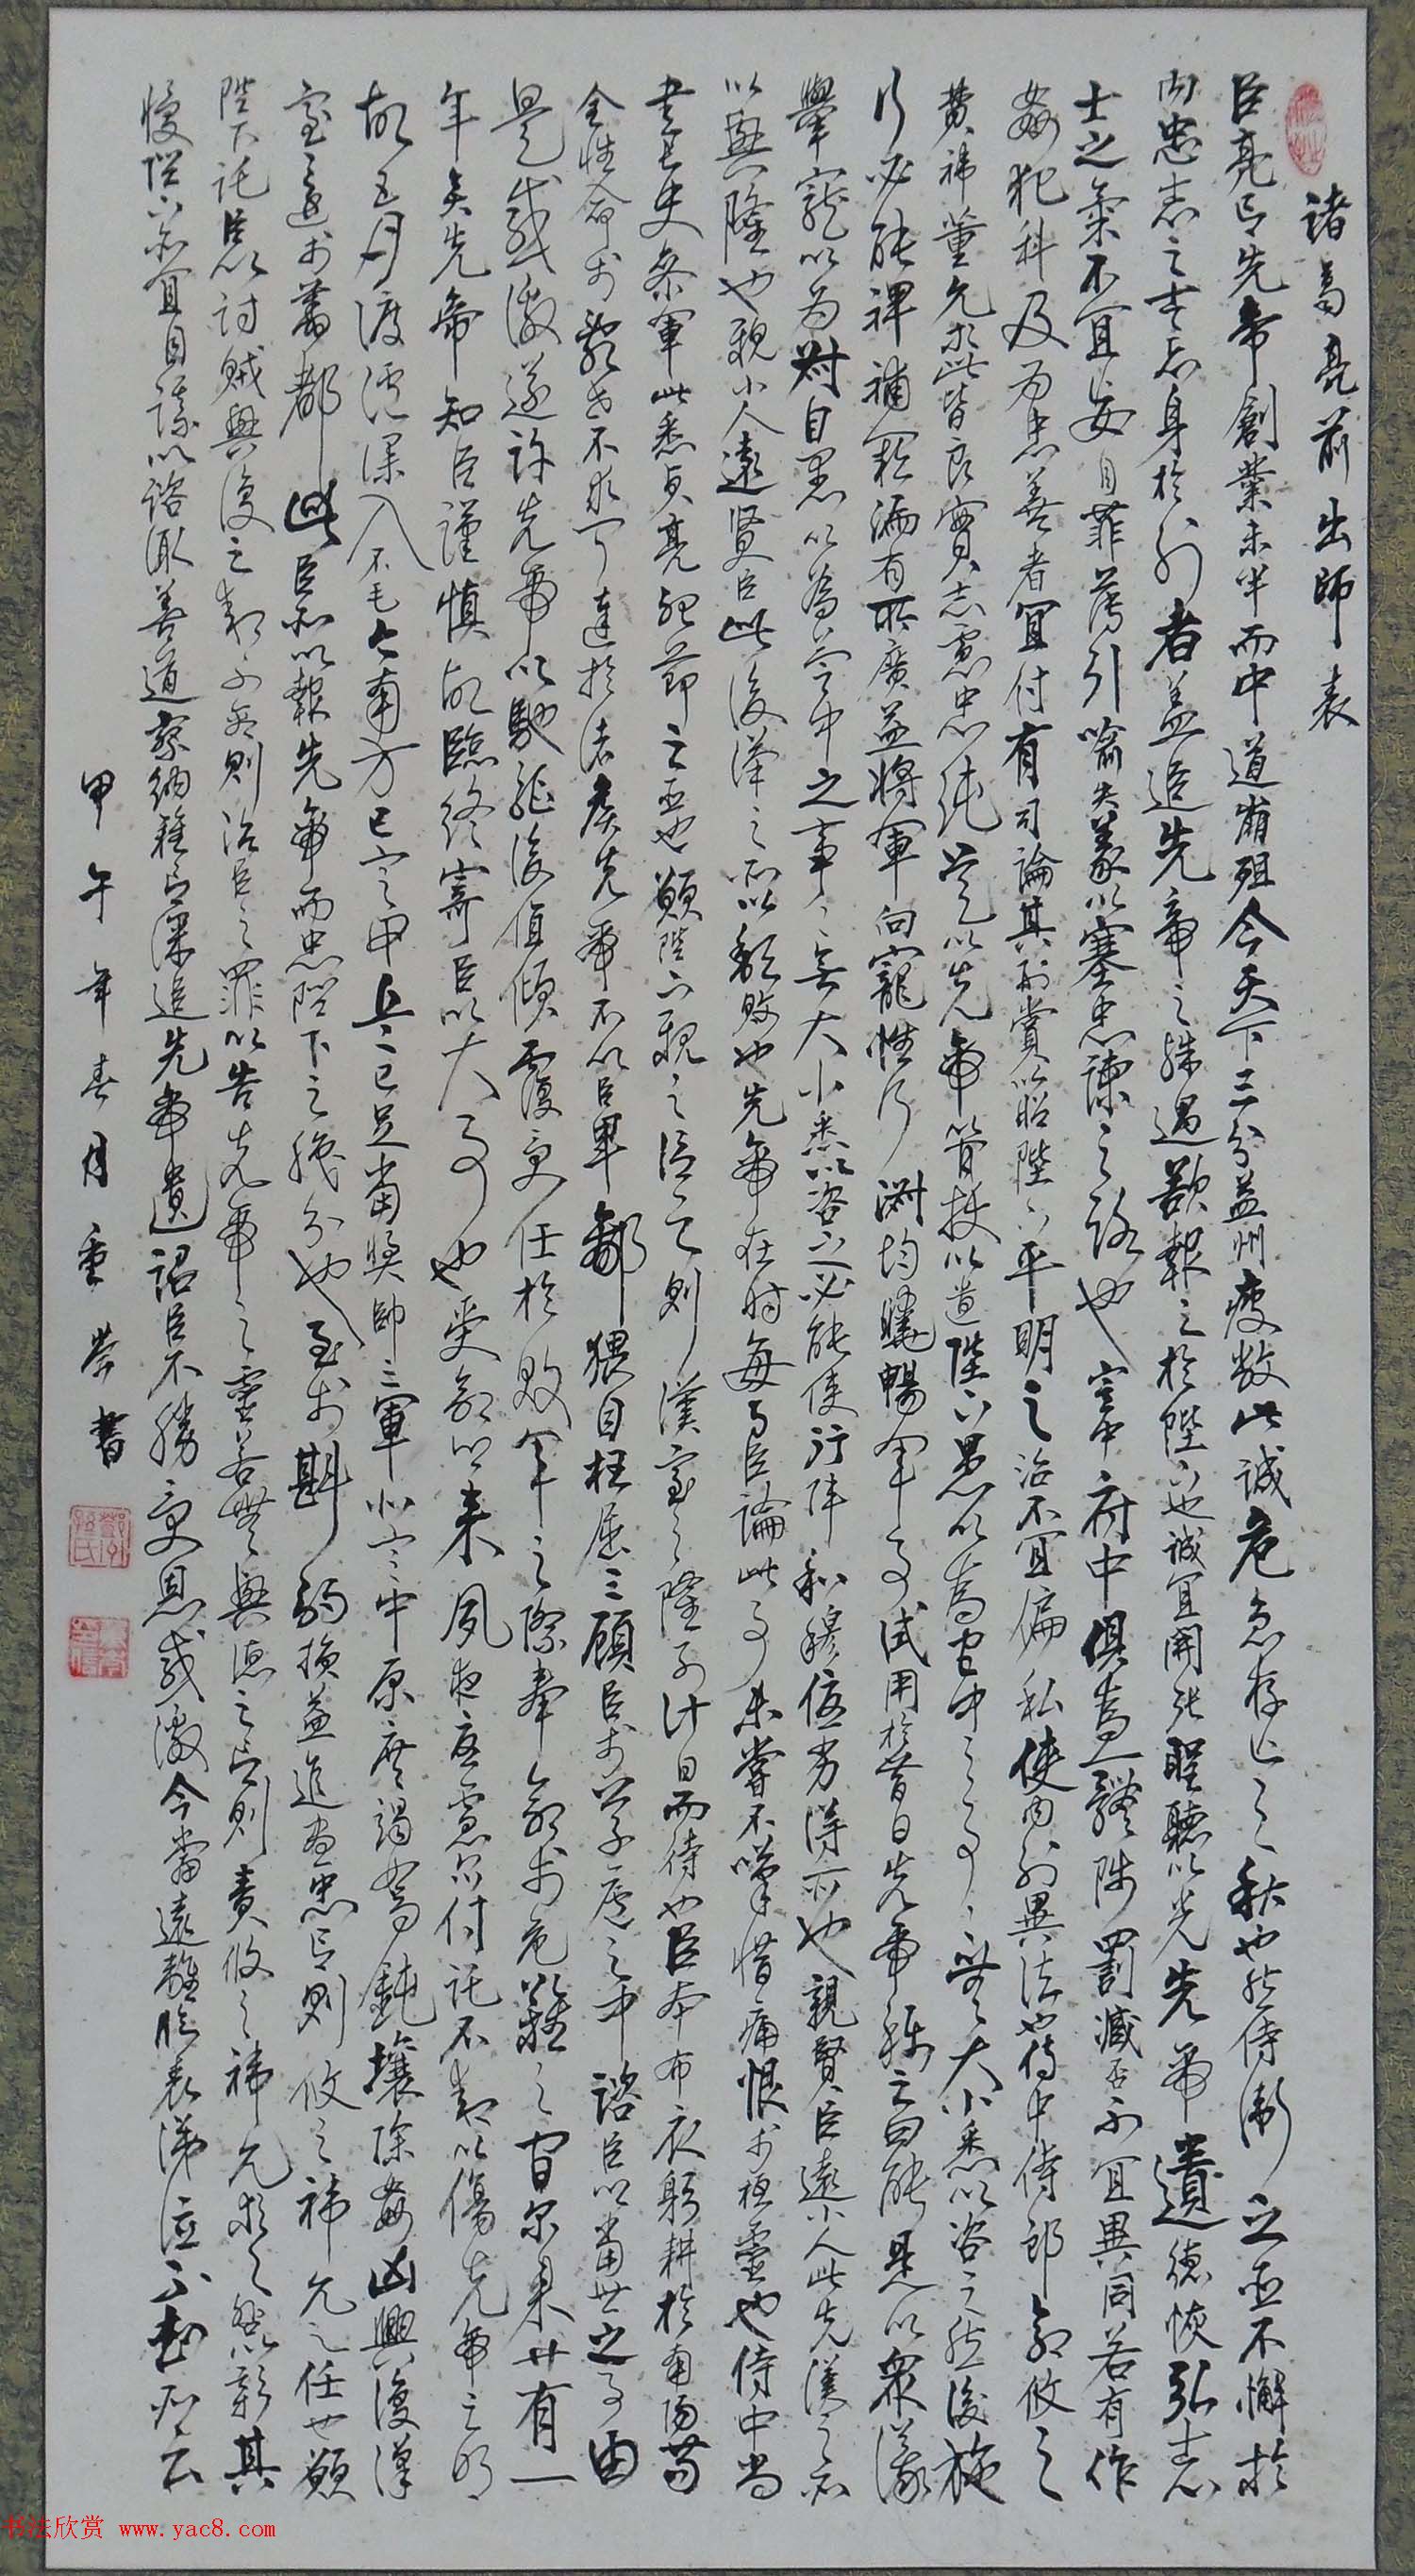 諸葛亮前出師表
臣亮言先帝創業未半而中道崩殂今天下三分益州疲敝此誠危急存亡之秋也然侍衛之臣不懈於
內忠志之士忘身於外者蓋追先帝之殊遇欲報之於陛下也誠宜開張聖聽以光先帝遺德恢弘志
士之氣不宜妄自菲薄引喻失義以塞忠諫之路也宮中府中俱為一體陟罰臧否不宜異同若有作
姦犯科及為忠善者宜付有司論其刑賞以昭陛下平明之治不宜偏私使內外異法也侍中侍郎郭攸之
費禕董允等此皆良實志慮忠純是以先帝簡拔以遺陛下愚以為宮中之事事無大小悉以咨之然後施
行必能裨補闕漏有所廣益將軍向寵性行淑均曉暢軍事試用於昔日先帝稱之曰能是以眾議
舉寵以為督愚以為營中之事事無大小悉以咨之必能使行陣和穆優劣得所也親賢臣遠小人此先漢之所
以興隆也親小人遠賢臣此後漢之所以頹敗也先帝在時每與臣論此事未嘗不嘆惜痛恨於桓靈也侍中尚
書長史參軍此悉貞亮死節之臣也願陛下親之信之則漢室之隆可計日而待也臣本布衣躬耕於南陽苟
全性命於亂世不求聞達於諸侯先帝不以臣卑鄙猥自枉屈三顧臣於草廬之中諮臣以當世之事由
是感激遂許先帝以馳驅後值傾覆受任於敗軍之際奉命於危難之間爾來廿有一
年矣先帝知臣謹慎故臨終寄臣以大事也受命以來夙夜憂慮恐付託不效以傷先帝之明
故五月渡瀘深入不毛今南方已定甲兵已足當獎帥三軍北定中原庶竭駑鈍攘除姦凶興復漢
室還於舊都此臣所以報先帝而忠陛下之職分也至於斟酌損益進盡忠言則攸之禕允之任也願
陛下託臣以討賊興復之效不效則治臣之罪以告先帝之靈若無興德之言則責攸之禕允等之咎以彰其
慢陛下亦宜自謀以諮諏善道察納雅言深追先帝遺詔臣不勝受恩感激今當遠離臨表涕泣不知所云
甲午年春月重榮書
书法欣赏 www.yac8.com